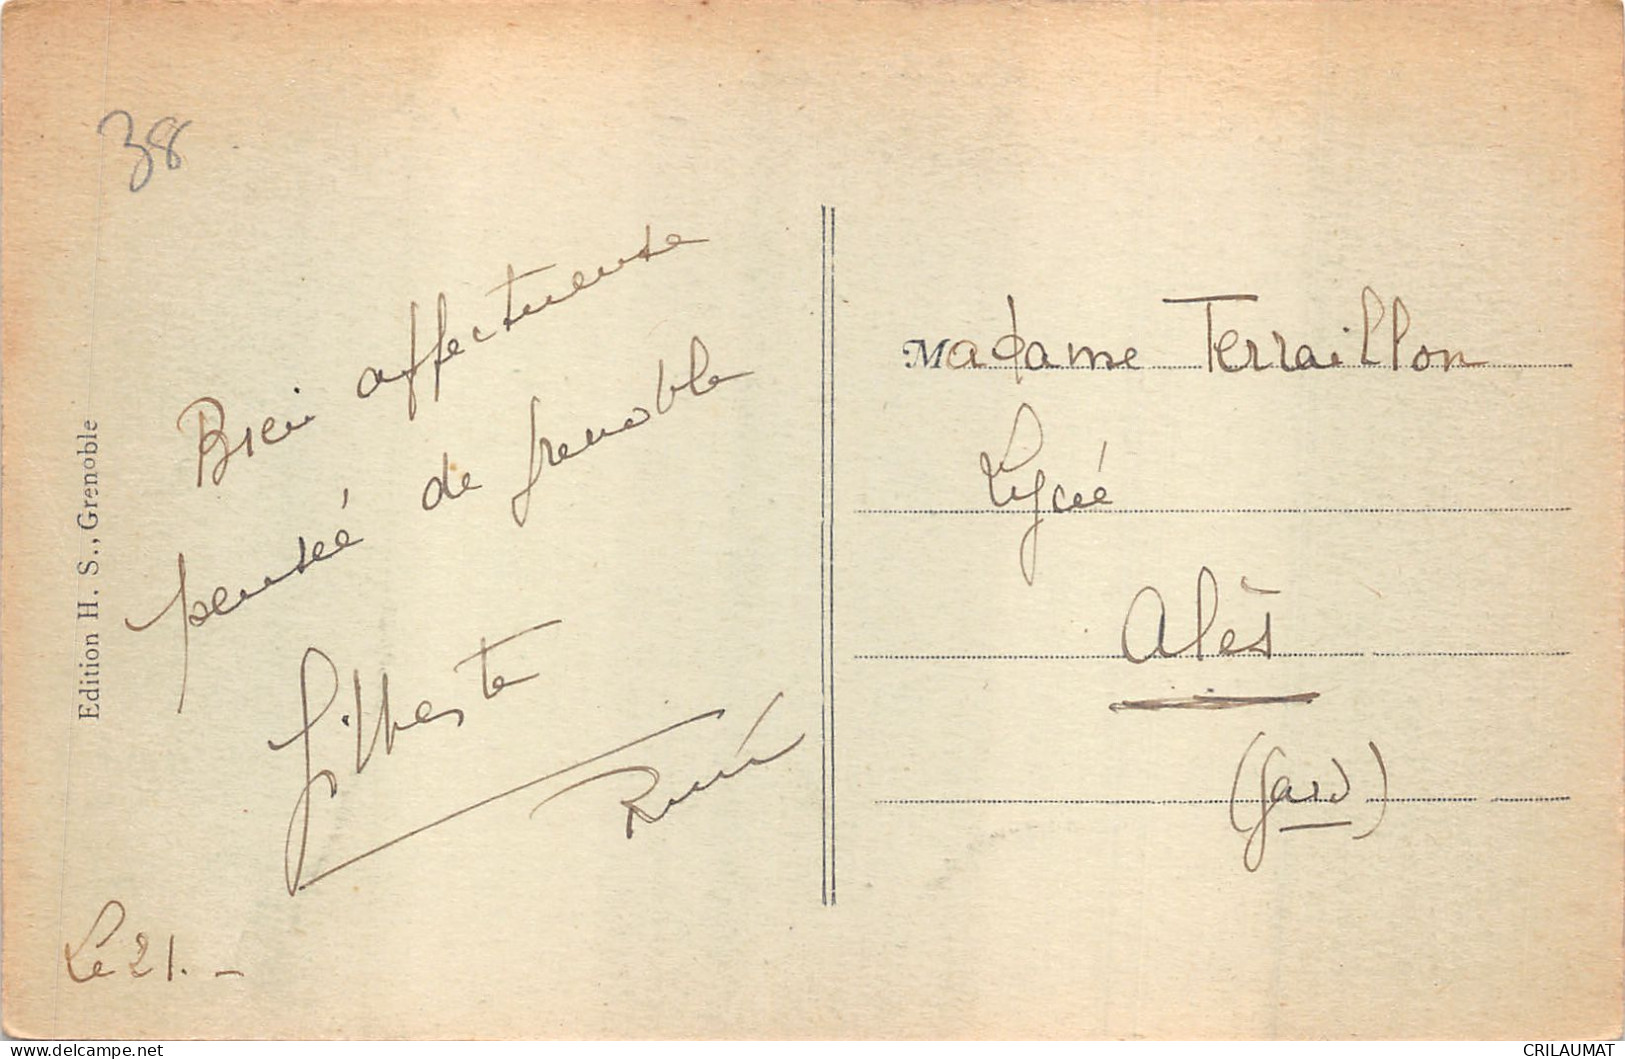 38
Bien affectueuse
pensée de Grenoble
Gilberte
René
Le 21. -
Edition H. S., Grenoble
Madame Terraillon
Lycée
Alès
(Gard)
http://www.delcampe.net
CRILAUMAT